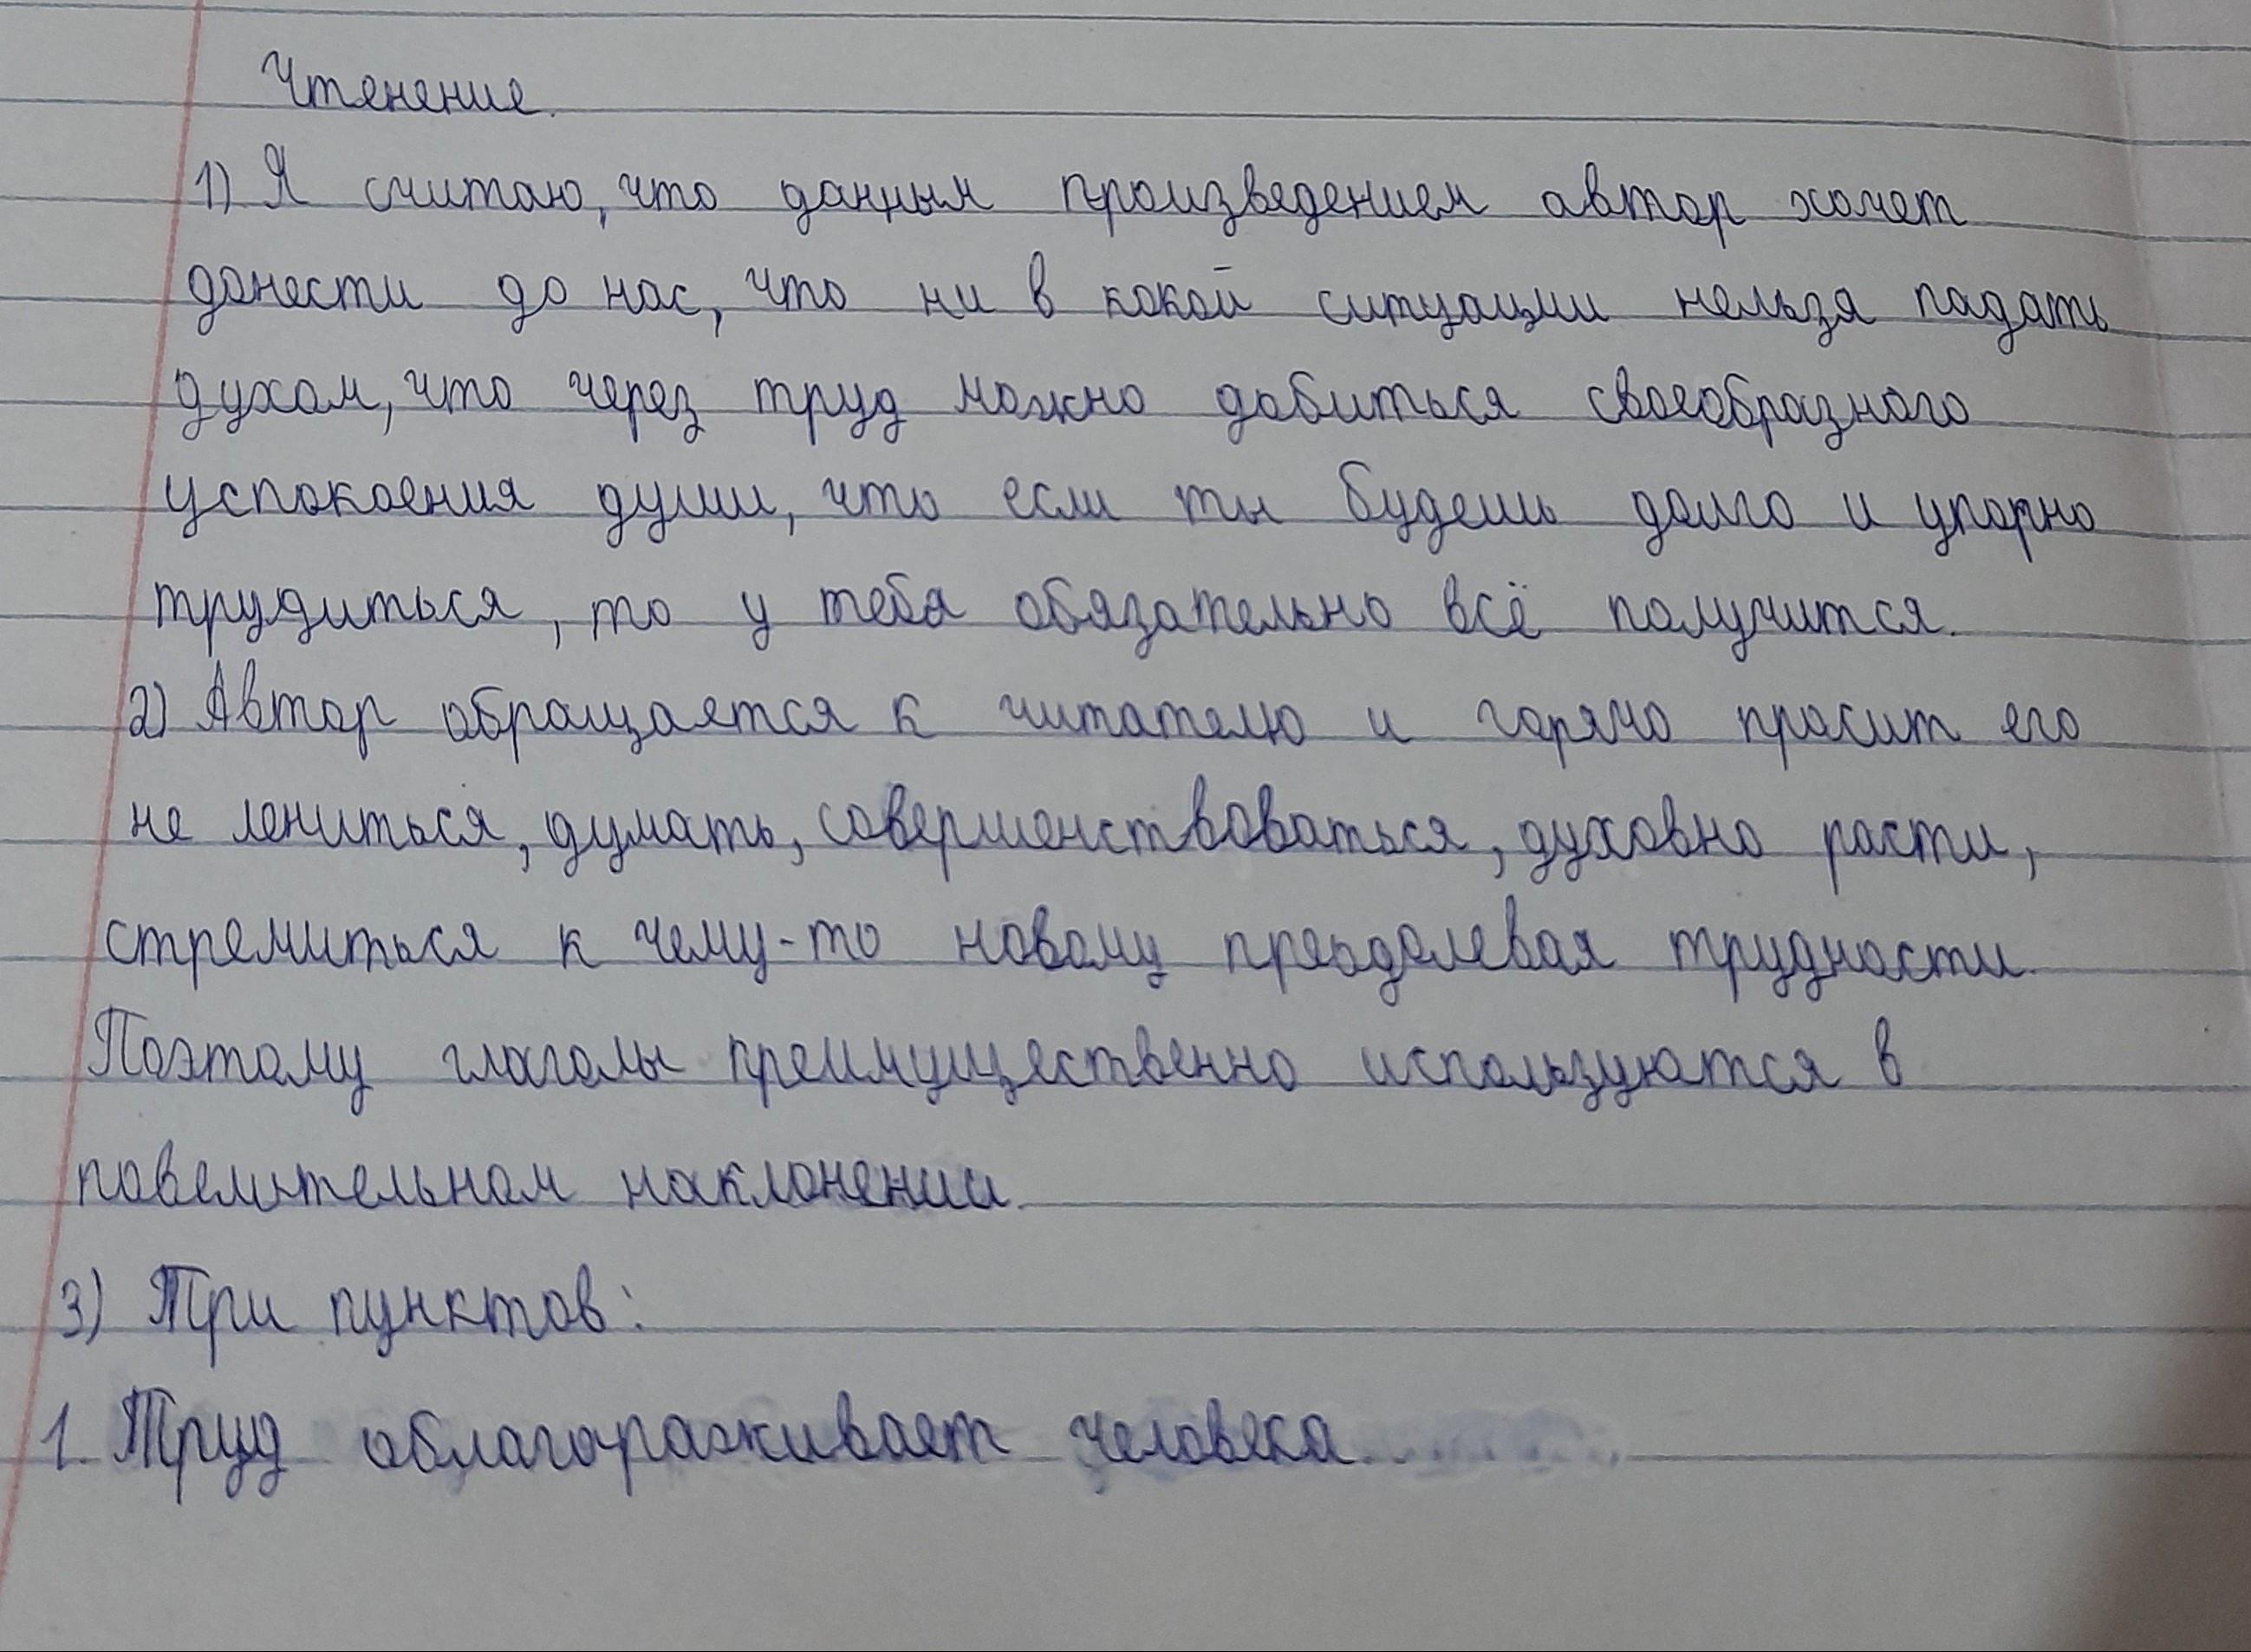 Чтенение.
1) Я считаю, что данным произведением автор хочет
донести до нас, что ни в какой ситуации нельзя падать
духом, что через труд можно добиться своеобразного
успокоения души, что если ты будешь долго и упорно
трудиться, то у тебя обязательно всё получится.
2) Автор обращается к читателю и горячо просит его
не лениться, думать, совершенствоваться, духовно расти,
стремиться к чему-то новому преодолевая трудности.
Поэтому глаголы преимущественно используются в
повелительном наклонении.
3) Три пунктов:
1. Труд облагораживает человека.